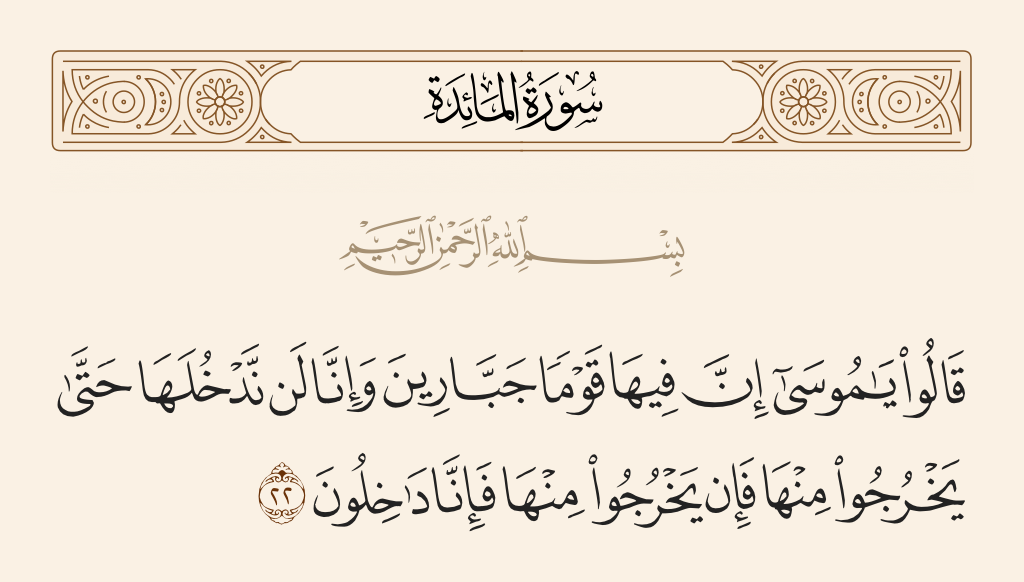 سُورَةُ المَائِدَةِ
بِسْمِ ٱللَّهِ ٱلرَّحْمَٰنِ ٱلرَّحِيمِ
قَالُوا۟ يَـٰمُوسَىٰٓ إِنَّ فِيهَا قَوْمًا جَبَّارِينَ وَإِنَّا لَن نَّدْخُلَهَا حَتَّىٰ
يَخْرُجُوا۟ مِنْهَا فَإِن يَخْرُجُوا۟ مِنْهَا فَإِنَّا دَٰخِلُونَ ٢٢